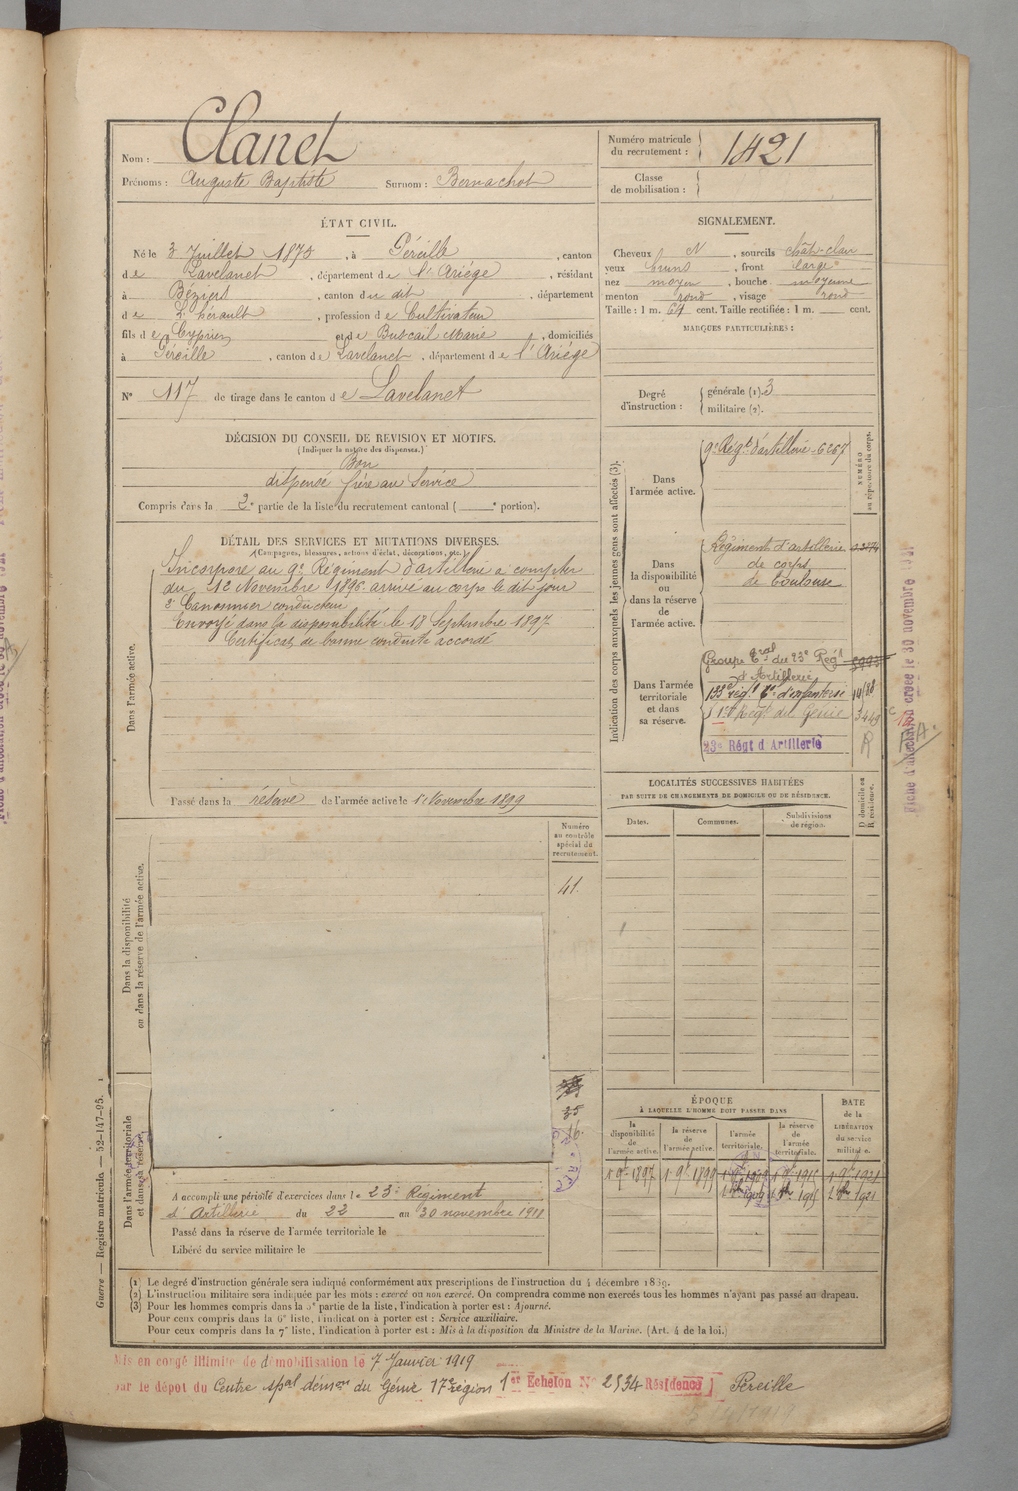 Nom : Clanet
Prénoms : Auguste Baptiste Surnom : Bernachot
Numéro matricule du recrutement : 1421
Classe de mobilisation :
ÉTAT CIVIL.
Né le 3 Juillet 1875, à Péreille, canton
de Lavelanet, département de l'Ariége, résidant
à Béziers, canton du dit, département
de L'hérault, profession de Cultivateur
fils de Cyprien et de Marie, domiciliés
à Péreille, canton de Lavelanet, département de l'Ariége
N° 117 de tirage dans le canton de Lavelanet
SIGNALEMENT.
Cheveux N, sourcils chât-clair
yeux bruns, front large
nez moyen, bouche moyenne
menton rond, visage rond
Taille : 1 m. 64 cent. Taille rectifiée : 1 m. cent.
MARQUES PARTICULIÈRES :
Degré d'instruction : générale (1). 3
militaire (2).
DÉCISION DU CONSEIL DE REVISION ET MOTIFS.
(Indiquer la nature des dispenses.)
Bon
dispensé frère au Service
Compris dans la 2e partie de la liste du recrutement cantonal ( e portion).
DÉTAIL DES SERVICES ET MUTATIONS DIVERSES.
(Campagnes, blessures, actions d'éclat, décorations, etc.)
Dans l'armée active.
Incorporé au 9e Régiment d'artillerie à compter
du 12 Novembre 1896 arrivé au corps le dit jour
2e Canonnier conducteur
Envoyé dans la disponibilité le 18 Septembre 1897
Certificat de bonne conduite accordé
Passé dans la réserve de l'armée active le 1er Novembre 1899
Indication des corps auxquels les jeunes gens sont affectés (3).
NUMÉRO au répertoire du corps.
Dans l'armée active.
9e Régt d'artillerie 6267
Dans la disponibilité ou dans la réserve de l'armée active.
Régiment d'artillerie
de corps
de Toulouse
Dans l'armée territoriale et dans sa réserve.
Groupe Tral du 23e Régt
d'Artillerie
133e régt Tal d'infanterie
Régt du Génie 3449
23e Régt d'Artillerie
LOCALITÉS SUCCESSIVES HABITÉES
PAR SUITE DE CHANGEMENTS DE DOMICILE OU DE RÉSIDENCE.
D domicile ou R résidence.
Dates. Communes. Subdivisions de région.
Numéro au contrôle spécial du recrutement.
41.
35
16
Dans la disponibilité ou dans la réserve de l'armée active.
Dans l'armée territoriale et dans sa réserve.
A accompli une période d'exercices dans le 23e Régiment
d'Artillerie du 22 au 30 novembre 1911
Passé dans la réserve de l'armée territoriale le
Libéré du service militaire le
ÉPOQUE
À LAQUELLE L'HOMME DOIT PASSER DANS
DATE de la LIBÉRATION du service militaire.
la disponibilité de l'armée active. la réserve de l'armée active. l'armée territoriale. la réserve de l'armée territoriale.
1 9bre 1897 1 9bre 1899 1 9bre 1909 1 9bre 1915 1 9bre 1921
(1) Le degré d'instruction générale sera indiqué conformément aux prescriptions de l'instruction du 4 décembre 1889.
(2) L'instruction militaire sera indiquée par les mots : exercé ou non exercé. On comprendra comme non exercés tous les hommes n'ayant pas passé au drapeau.
(3) Pour les hommes compris dans la 5e partie de la liste, l'indication à porter est : Ajourné.
Pour ceux compris dans la 6e liste, l'indication à porter est : Service auxiliaire.
Pour ceux compris dans la 7e liste, l'indication à porter est : Mis à la disposition du Ministre de la Marine. (Art. 4 de la loi.)
Guerre — Registre matricule. — 52-147-95. 1
Mis en congé illimité de démobilisation le 7 Janvier 1919
par le dépôt du Centre spal démon du Génie 17e région 1er Echelon N° 2534 Résidence Péreille
Fiche d'affectation créée le 30 novembre